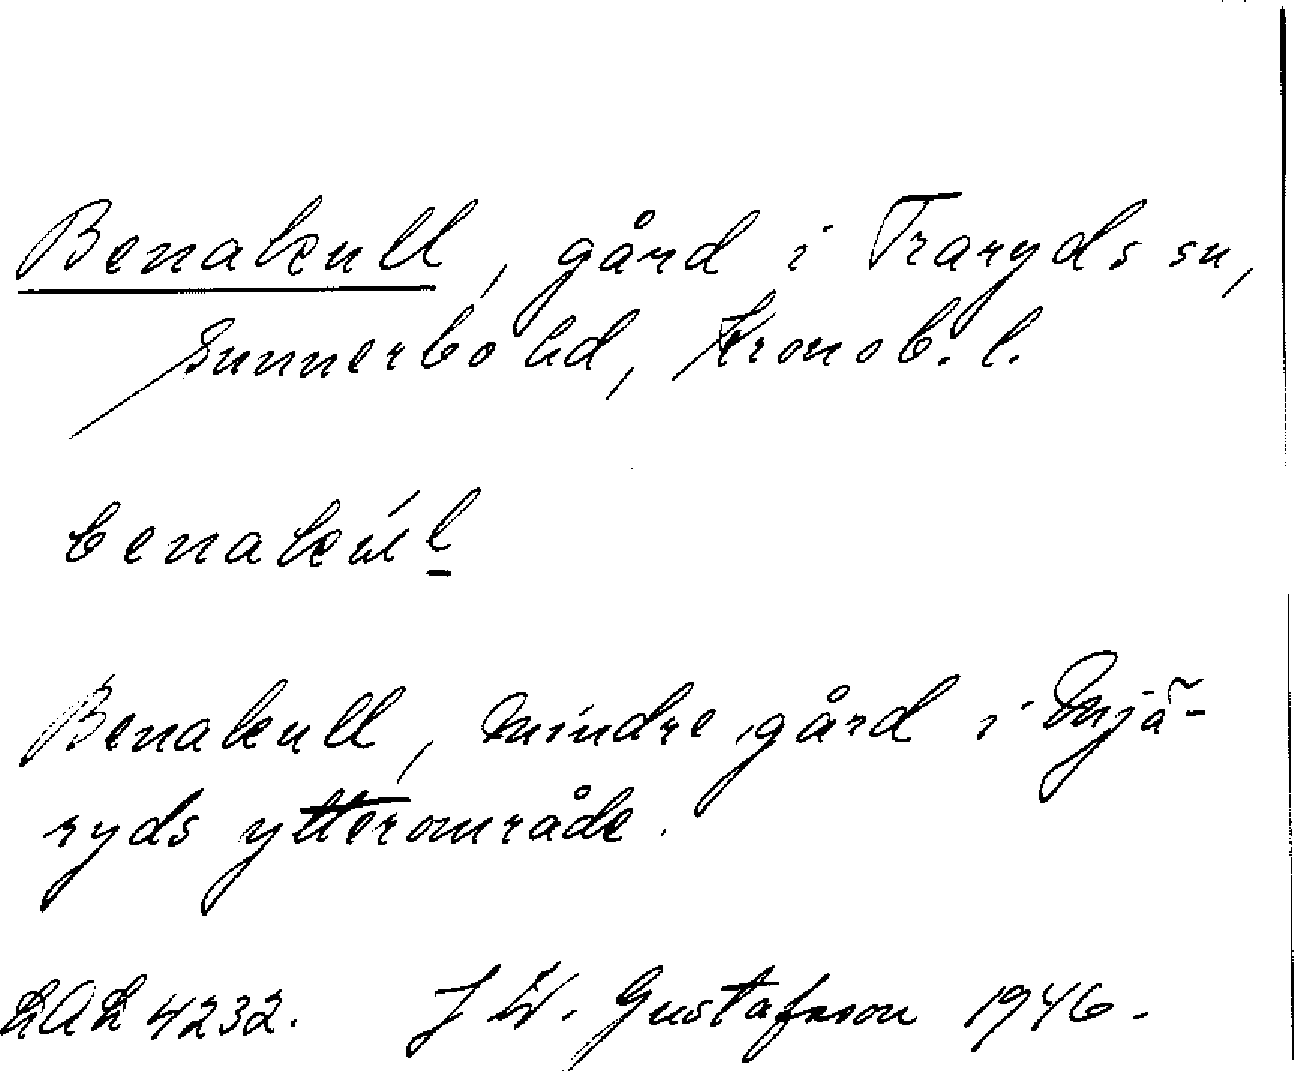 Benakull, gård i Traryds sn,
Sunnerbo hd, Kronob. l.
benakúl
Benakull, mindre gård i Mjä-
ryds ytterområde.
LAL 4232. J W. Gustafsson 1946.